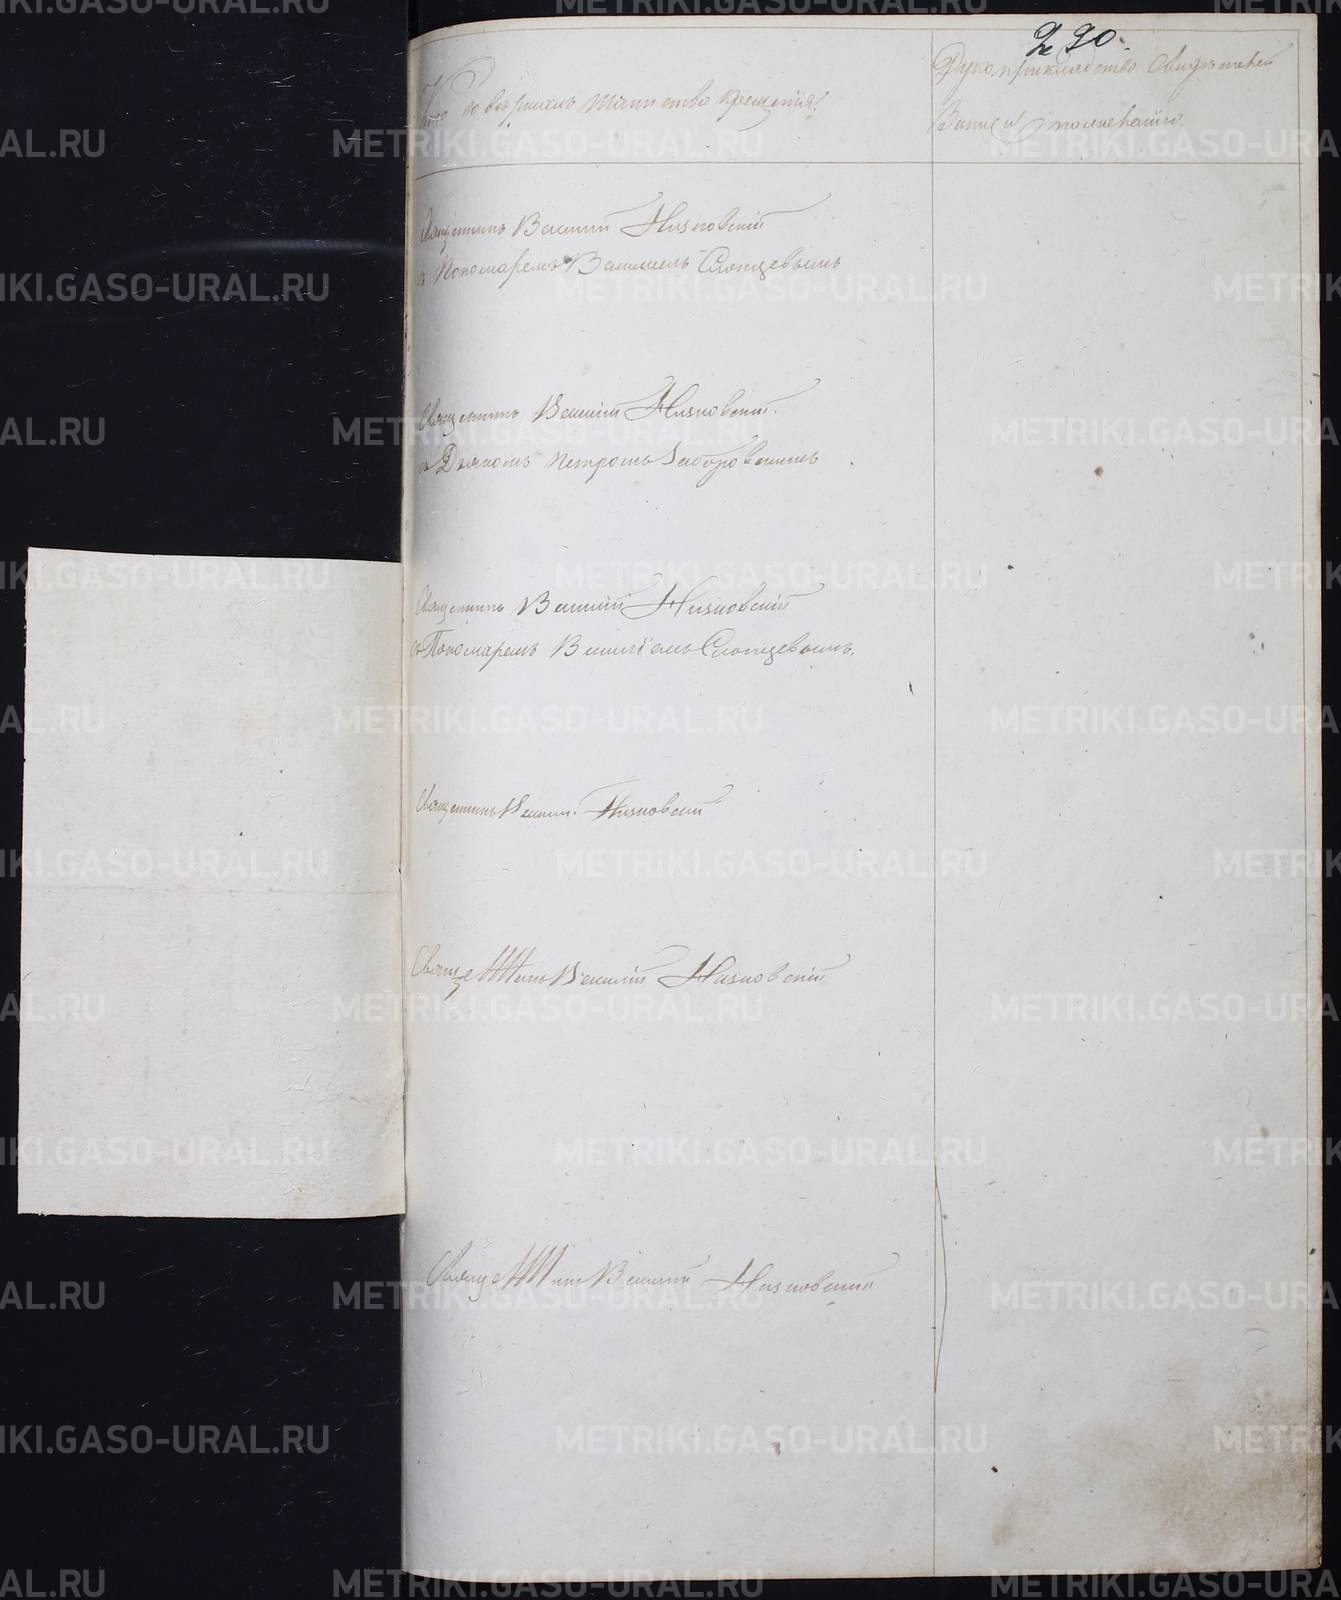 290.
Кто совершалъ таинство крещенія?
Рукоприкладство свидѣтелей
записи по желанію.
Священникъ Василій Низковскій
съ Пономаремъ Василіемъ Слопцевымъ
Священникъ Василій Низковскій.
съ Дьякомъ Петромъ Заборовскимъ
Священникъ Василій Низковскій
съ Пономаремъ Василіемъ Слопцевымъ.
Священникъ Василій Низковскій
Священникъ Василій Низковскій
Священникъ Василій Низковскій
METRIKI.GASO-URAL.RU